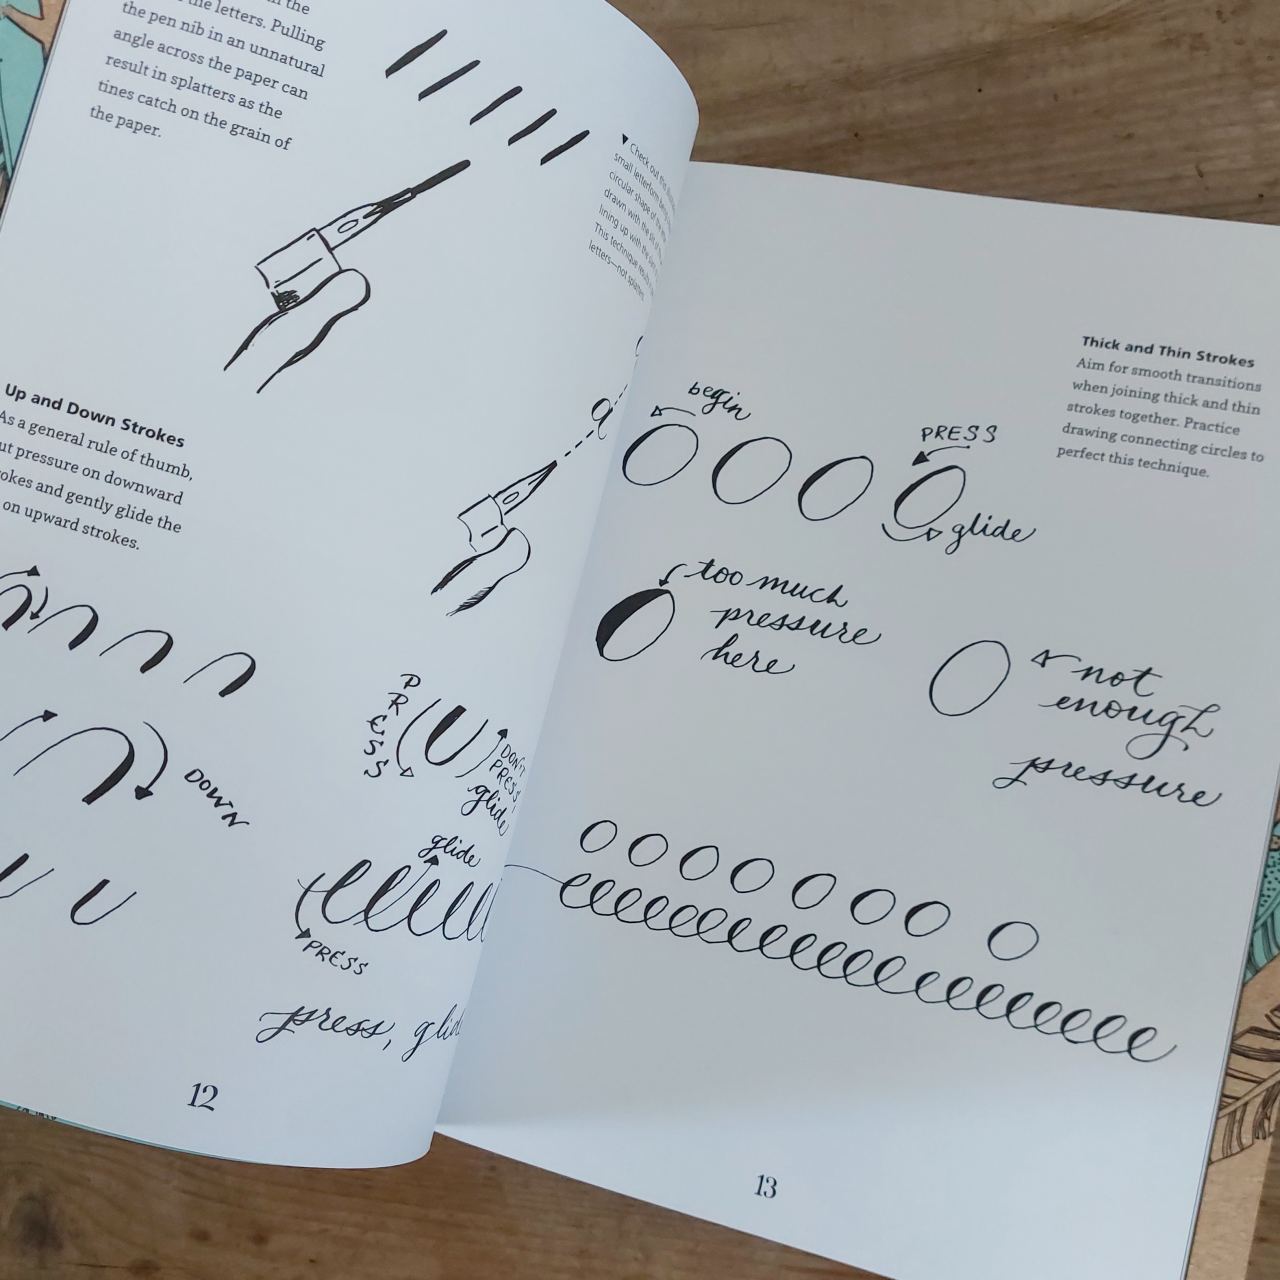 the
the letters. Pulling
the pen nib in an unnatural
angle across the paper can
result in splatters as the
tines catch on the grain of
the paper.
Check out
small letterform
circular shape of the
drawn with the
lining up with the
This technique
letters—not
Up and Down Strokes
As a general rule of thumb,
pressure on downward
and gently glide the
on upward strokes.
a
PRESS
DON'T
PRESS,
glide
DOWN
glide
PRESS
press,
12
Thick and Thin Strokes
Aim for smooth transitions
when joining thick and thin
strokes together. Practice
drawing connecting circles to
perfect this technique.
begin
PRESS
glide
too much
pressure
here
not
enough
pressure
13